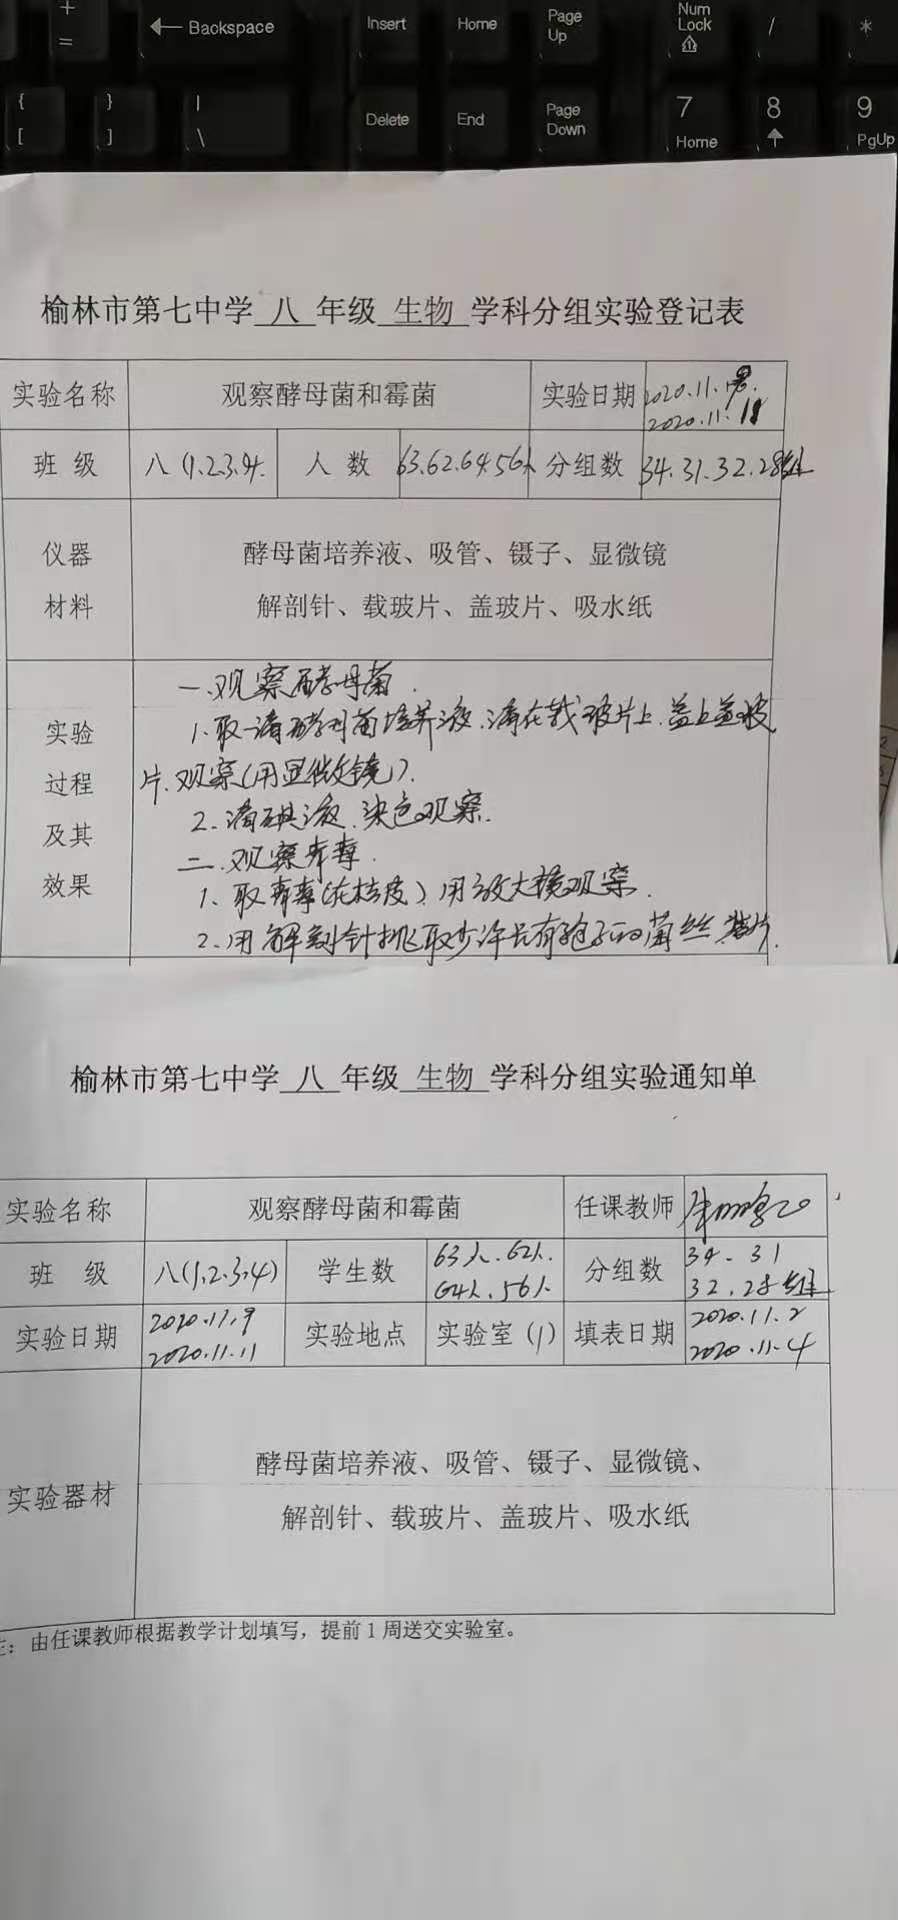 +
=
← Backspace
Insert
Home
Page Up
Num Lock
/
*
{
[
}
]
|
\
Delete
End
Page Down
7 Home
8 ↑
9 PgUp
榆林市第七中学 八 年级 生物 学科分组实验登记表
实验名称 观察酵母菌和霉菌 实验日期 2020.11.
2020.11.
班 级 八(1.2.3.4. 人 数 63.62.64.56人 分组数 34.31.32.28组
仪器 酵母菌培养液、吸管、镊子、显微镜
材料 解剖针、载玻片、盖玻片、吸水纸
一.观察酵母菌.
实验 1.取一滴酵母菌培养液.滴在载玻片上.盖上盖玻
过程 片.观察(用显微镜).
2.滴碘液.染色观察.
及其 二.观察青霉.
效果 1.取青霉(在桔皮)用放大镜观察.
2.用解剖针挑取少许长有孢子的菌丝 装片.
榆林市第七中学 八 年级 生物 学科分组实验通知单
实验名称 观察酵母菌和霉菌 任课教师
班 级 八(1.2.3.4) 学生数 63人.62人. 分组数 34.31
64人.56人 32.28组
实验日期 2020.11.9 实验地点 实验室(1) 填表日期 2020.11.2
2020.11.11 2020.11.4
实验器材 酵母菌培养液、吸管、镊子、显微镜、
解剖针、载玻片、盖玻片、吸水纸
：由任课教师根据教学计划填写，提前1周送交实验室。